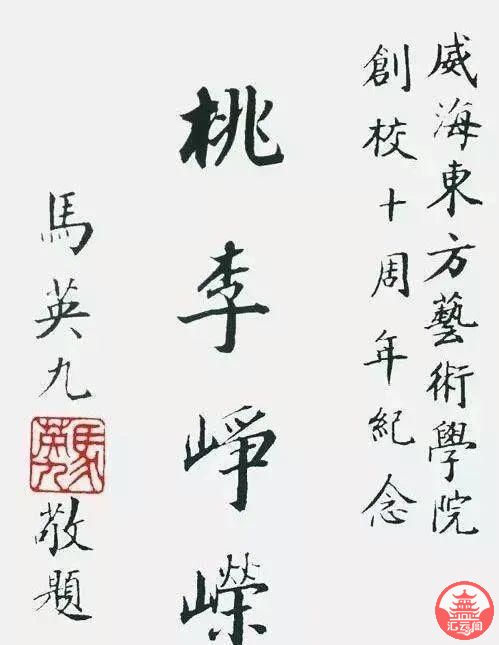 威海東方藝術學院
創校十周年紀念
桃李崢嶸
馬英九
馬英九
敬題
汇云间